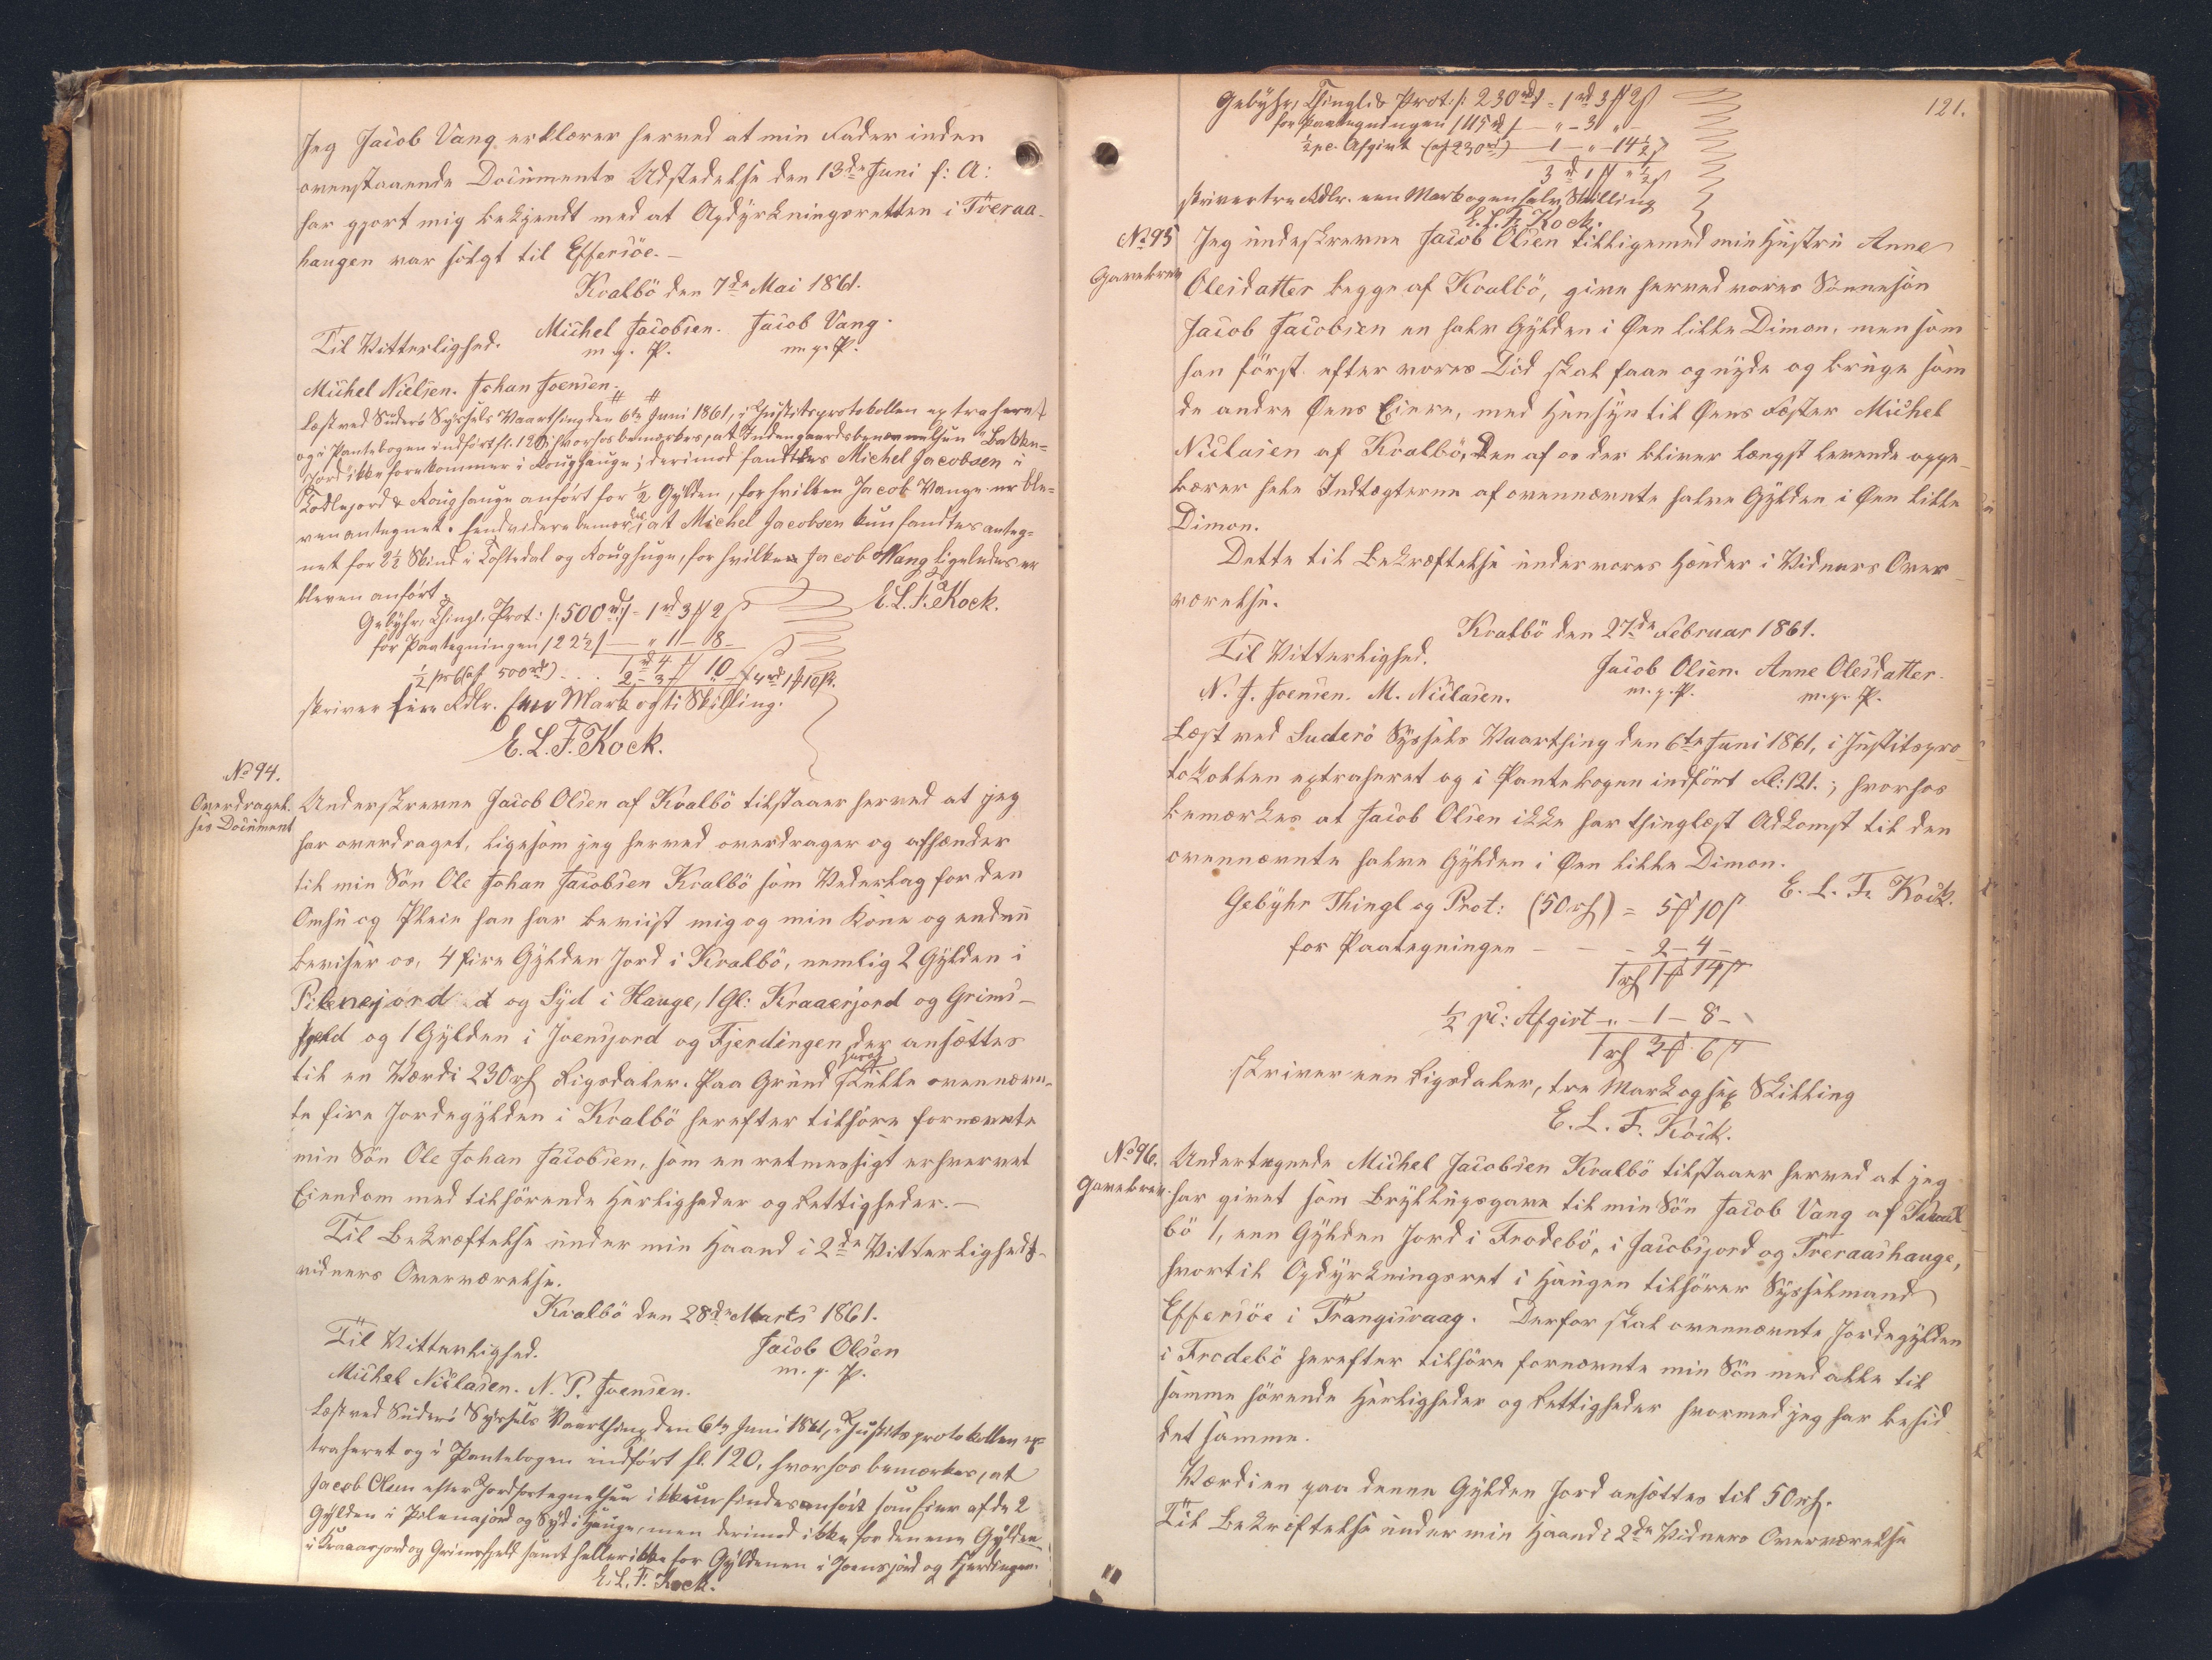 Jeg Jacob Vang erklærer herved at min Fader inden
ovenstaaende Documents Udstedelse den 13de Juni f: A:
har gjort mig bekjendt med at Opdyrkningsretten i Treraa-
haugen var solgt til Effersöe.—
Kvalbö den 7de Mai 1861.
Michel Jacobsen. Jacob Vang.
Til Vitterlighed.
m. p. P. m. p. P.
Michel Nielsen. Johan Joensen.
Læst ved Suderö Syssels Vaarthing den 6te Juni 1861, i Justitsprotokollen extraheret
og i Pantebogen indfört fl. 120; hvorhos bemærkes, at Indengaardsbenævnelsen "Bakke-
Jord" ikke forekommer i Roughauge; derimod fandtes Michel Jacobsen i
Roughauge anfört for ½ Gylden, for hvilken Jacob Vang er ble-
ven antegnet. Endvidere bemærkes, at Michel Jacobsen kun fandtes anteg-
net for 2½ Skind i Toftedal og Roughuge, for hvilke Jacob Vang ligeledes er
bleven anfört.
E. L. F. Kock.
Gebyhr, Thingl. Prot: /: 500rd:/ = 1rd 3ß 2ß
for Paategningen /22½/ — " 1 — 8 —
1rd 4ß 10
½ pr Ct (af 500rd) . . . 2 - 3 - 4rd 1ß 10ß.
skriver fire Rdlr. een Mark og ti Skilling.
E. L. F. Kock.
No 94.
Overdragel-
ses Document
Underskrevne Jacob Olsen af Kvalbö tilstaaer herved at jeg
har overdraget, ligesom jeg herved overdrager og afhænder
til min Sön Ole Johan Jacobsen Kvalbö som Vederlag for den
Omhu og Pleie han har beviist mig og min Kone og endnu
beviser os, 4 fire Gylden Jord i Kvalbö, nemlig 2 Gylden i
Pilenejord og Syd i Hauge, 1 Gl: Kraaerjord og Grims-
fjeld og 1 Gylden i Joensjord og Fjerdingen der ansættes
til en Værdi 230rd Rigsdaler. Paa Grund heraf skulle ovennævn-
te fire Jordegylden i Kvalbö herefter tilhöre fornævnte
min Sön Ole Johan Jacobsen, som en retmessigt erhvervet
Eiendom med tilhörende Herligheder og Rettigheder.—
Til Bekræftelse under min Haand i 2de Vitterligheds-
vidners Overværelse.
Kvalbö den 28de Marts 1861.
Til Vitterlighed. Jacob Olsen
m. p. P.
Michel Niclasen. N. P. Joensen.
Læst ved Suderö Syssels Vaarthing den 6te Juni 1861, i Justitsprotokollen ex-
traheret og i Pantebogen indfört fl. 120, hvorhos bemærkes, at
Jacob Olsen efter Jordfortegnelsen ikkun findes anfört som Eier af de 2
Gylden i Pilenajord og Syd i Hauge, men derimod ikke for den ene Gylden
i Kraaarjord og Grimsfjeld samt heller ikke for Gyldenen i Joensjord og Fjerdingen.
E. L. F. Kock.
121.
Gebyhr, Thingl & Prot: /: 230rd:/ = 1rd 3ß 2ß
for Paategningen /115rd/ — " - 3 " —
½ pc. Afgivt (af 230rd) — 1 — " — 14½ß
3rd 1ß " ½ß
skriver tre Rdlr. een Mark og en halv Skilling
E. L. F. Kock.
No 95
Gavebrev
Jeg undeskrevne Jacob Olsen tilligemed min Hustru Anne
Olesdatter begge af Kvalbö, give herved vores Sönnesön
Jacob Jacobsen en halv Gylden i Öen lille Dimon, men som
han först efter vores Död skal faae og nyde og bruge som
de andre Öens Eiere, med Hensyn til Öens Fæster Michel
Niclasen af Kvalbö, Den af os der bliver længst levende oppe-
bærer hele Indtægterne af ovennævnte halve Gylden i Öen lille
Dimon.
Dette til Bekræftelse under vores Hænder i Vidners Over-
værelse.
Kvalbö den 27de Februar 1861.
Til Vitterlighed.
Jacob Olsen. Anne Olesdatter.
N. J. Joensen. M. Niclasen. m. p. P. m. p. P.
Læst ved Suderö Syssels Vaarthing den 6te Juni 1861, i Justitspro-
tokollen extraheret og i Pantebogen indfört Fl: 121.; hvorhos
bemærkes at Jacob Olsen ikke har thinglæst Adkomst til den
ovennævnte halve Gylden i Öen lille Dimon.
E. L. F. Kock.
Gebyhr Thingl og Prot: (50rd) = 5ß 10ß
for Paategningen — — - 2 - 4 -
1rd 1ß 14ß
½ pC: Afgivt - " - 1 - 8 -
1rd 3ß 6ß
skriver een Rigsdaler, tre Mark og sex Skilling
E. L. F. Kock.
No 96.
Gavebrev.
Undertegnede Michel Jacobsen Kvalbö tilstaaer herved at jeg
har givet som Bryllupsgave til min Sön Jacob Vang af Kval-
bö 1, een Gylden Jord i Frodebö, i Jacobsjord og Treraashauge,
hvortil Opdyrkningsret i Haugen tilhörer Sysselmand
Effersöe i Trangisvaag. Derfor skal ovennævnte Jordegylden
i Frodebö herefter tilhöre fornævnte min Sön med alle til
samme hörende Herligheder og Rettigheder hvormed jeg har besid-
det samme.
Værdien paa denne Gylden Jord ansættes til 50rd.
Til Bekræftelse under min Haand i 2de Vidners Overværelse